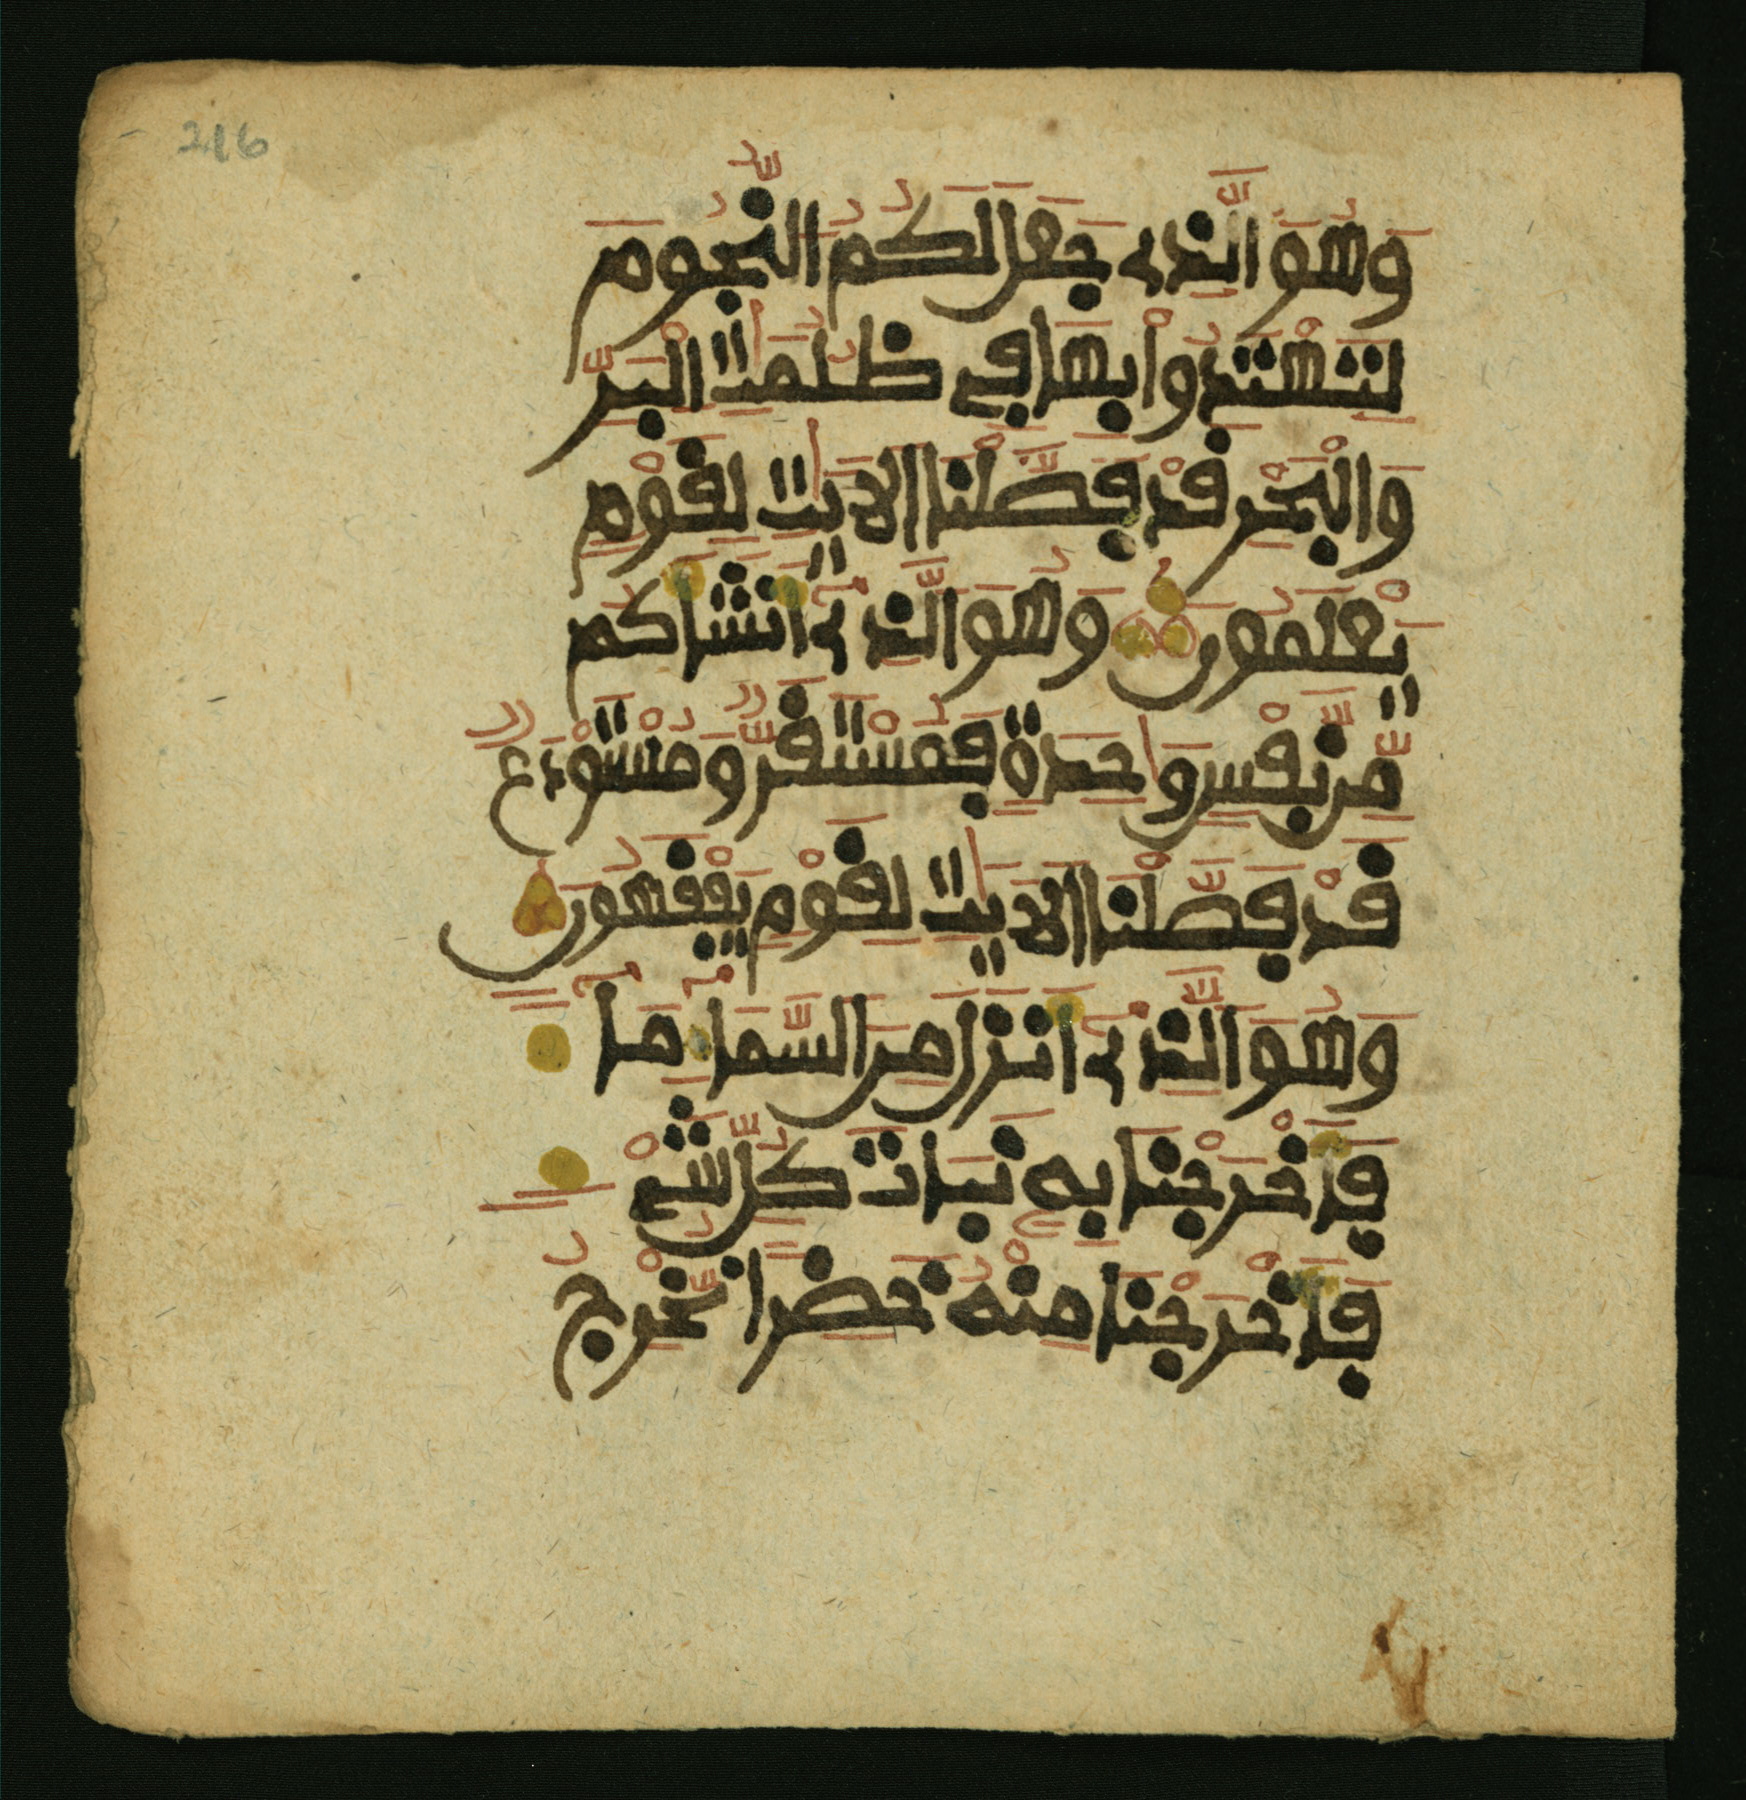 216
وَهُوَ الَّذِے جَعَلَ لَكُمُ النُّجُومَ
لِتَهْتَدُواْ بِهَا فِے ظُلُمَٰتِ الْبَرِّ
وَالْبَحْرِ قَدْ فَصَّلْنَا الَايَٰتِ لِقَوْمٍ
يَعْلَمُونَ وَهُوَ الَّذِے أَنشَأَكُم
مِّن نَّفْسٍ وَٰحِدَةٍ فَمُسْتَقَرٌّ وَمُسْتَوْدَعٌ
قَدْ فَصَّلْنَا الَايَٰتِ لِقَوْمٍ يَفْقَهُونَ
وَهُوَ الَّذِے أَنزَلَ مِنَ السَّمَآءِ مَآءً
فَأَخْرَجْنَا بِهِ نَبَاتَ كُلِّ شَےْءٍ
فَأَخْرَجْنَا مِنْهُ خَضِراً نُّخْرِجُ